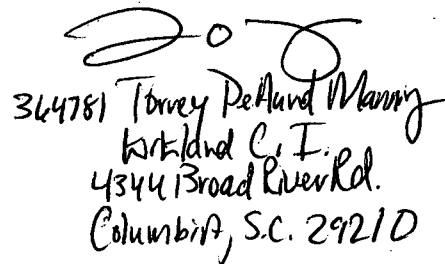 364781 Torrey DeAund Manning
Kirkland C. I.
4344 Broad River Rd.
Columbia, S.C. 29210